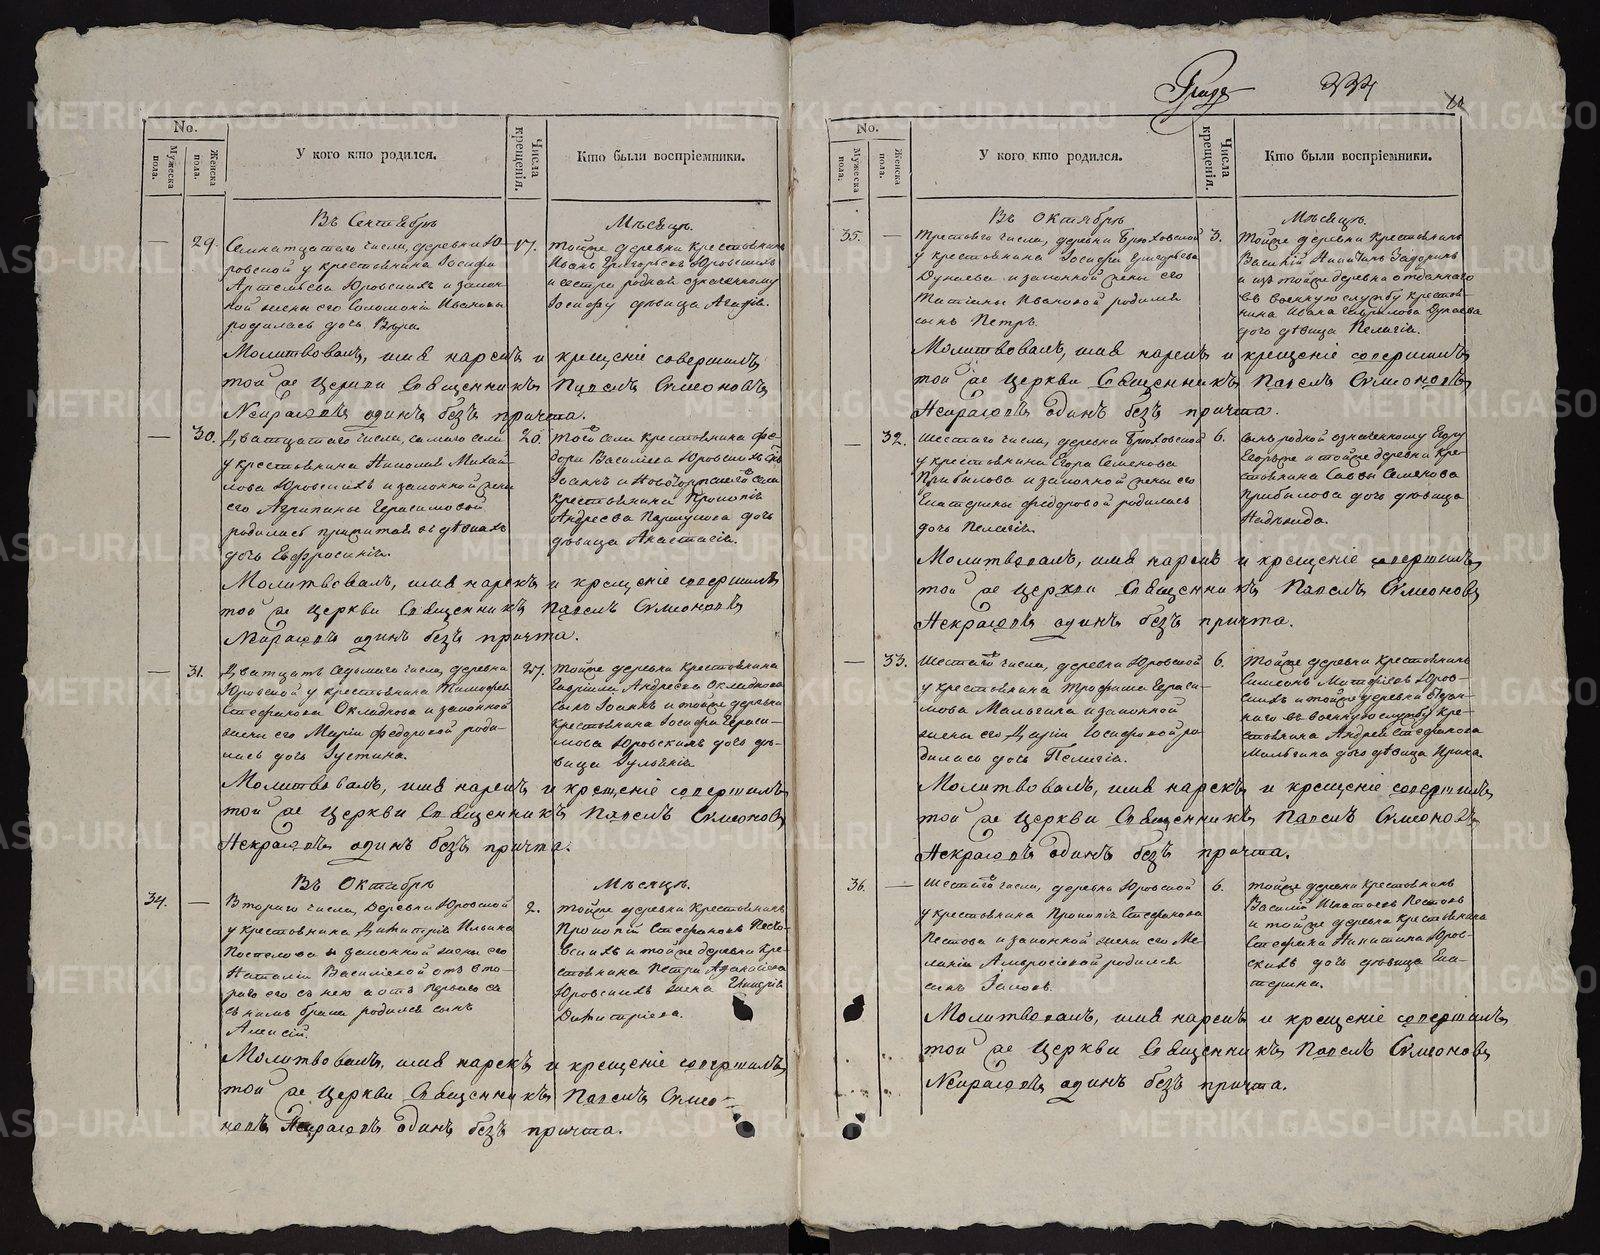 334
No.
Мужеска пола.
Женска пола.
У кого кто родился.
Числа крещенія.
Кто были воспріемники.
Въ Сентябрѣ
Мѣсяцѣ.
—
29.
Семнатцатаго числа, деревни Ю-
ровской у крестьянина Іосифа
Артемьева Юровскихъ и закон-
ной жены его Соломоніи Ивановы
родилась дочь Вѣра.
17.
тойже деревни крестьянинъ
Иванъ Григорьевъ Юровскихъ
и сестра родная означенному
Іосифу дѣвица Агафія.
Молитвовалъ, имя нарекъ и крещеніе совершилъ
той же Церкви Священникъ Павелъ Симеоновъ
Некрасовъ одинъ безъ причта.
—
30.
Дватцатаго числа, самаго села
у крестьянина Николая Михай-
лова Юровскихъ и законной жены
его Агрипины Герасимовой
родилась прижитая въ дѣвкахъ
дочь Евфросинія.
20.
того села крестьянина Фе-
дора Васильева Юровскихъ сынъ
Іоаннъ и
крестьянина Прокопія
Андреева дочь
дѣвица Анастасія.
Молитвовалъ, имя нарекъ и крещеніе совершилъ
той же церкви Священникъ Павелъ Симеоновъ
Некрасовъ одинъ безъ причта.
—
31.
Дватцать седьмаго числа, деревни
Юровской у крестьянина Тимофея
Стефанова Окладнова и законной
жены его Маріи Федоровой роди-
лась дочь Іустина.
27.
тойже деревни крестьянина
Гавріила Андреева Окладнова
сынъ Іоаннъ и тойже деревни
крестьянина Іосифа Гераси-
мова Юровскихъ дочь дѣ-
вица Іуліанія.
Молитвовалъ, имя нарекъ и крещеніе совершилъ
той же Церкви Священникъ Павелъ Симеоновъ
Некрасовъ одинъ безъ причта.
Въ Октябрѣ
Мѣсяцѣ.
34.
—
Втораго числа, деревни Юровской
у крестьянина Димитрія Ильина
Постелова и законной жены его
Наталіи Васильевой отъ вто-
раго его съ нею а отъ перваго ея
съ нимъ брака родился сынъ
Алексій.
2.
тойже деревни крестьянинъ
Прокопій Стефановъ
и тойже деревни кре-
стьянина Петра Афанасьева
Юровскихъ жена Гликерія
Димитріева.
Молитвовалъ, имя нарекъ и крещеніе совершилъ
той же Церкви Священникъ Павелъ Симео-
новъ Некрасовъ одинъ безъ причта.
No.
Мужеска пола.
Женска пола.
У кого кто родился.
Числа крещенія.
Кто были воспріемники.
Въ Октябрѣ
Мѣсяцѣ.
35.
—
Третьяго числа, деревни Брюховской
у крестьянина Іосифа Григорьева
Дунаева и законной жены его
Татіаны Ивановой родился
сынъ Петръ.
3.
тойже деревни крестьянинъ
Василій Никитинъ Задоринъ
и изъ тойже деревни отданнаго
въ военную службу крестья-
нина Ивана Гаврилова Дунаева
дочь дѣвица Пелагія.
Молитвовалъ, имя нарекъ и крещеніе совершилъ
той же Церкви Священникъ Павелъ Симеоновъ
Некрасовъ одинъ безъ причта.
—
32.
Шестаго числа, деревни Брюховской
у крестьянина Егора Семенова
Прибылова и законной жены его
Екатерины Федоровой родилась
дочь Пелагія.
6.
сынъ родной означенному Егору
Егоръ же и тойже деревни кре-
стьянина Саввы Семенова
Прибылова дочь дѣвица
Надежда.
Молитвовалъ, имя нарекъ и крещеніе совершилъ
той же церкви Священникъ Павелъ Симеоновъ
Некрасовъ одинъ безъ причта.
—
33.
Шестаго числа, деревни Юровской
у крестьянина Трофима Гераси-
мова Мальгина и законной
жены его Даріи Іосифовой ро-
дилась дочь Пелагія.
6.
тойже деревни крестьянинъ
Симеонъ Матфіевъ Юров-
скихъ и тойже деревни отдан-
наго въ военную службу кре-
стьянина Андрея Стефанова
Мальгина дочь дѣвица Ирина.
Молитвовалъ, имя нарекъ и крещеніе совершилъ
той же Церкви Священникъ Павелъ Симеоновъ
Некрасовъ одинъ безъ причта.
36.
—
Шестаго числа, деревни Юровской
у крестьянина Прокопія Стефанова
Пестова и законной жены его Ме-
ланіи Амвросіевой родился
сынъ Іаковъ.
6.
тойже деревни крестьянинъ
Василій Игнатьевъ Пестовъ
и тойже деревни крестьянина
Стефана Никитина Юров-
скихъ дочь дѣвица Ека-
терина.
Молитвовалъ, имя нарекъ и крещеніе совершилъ
той же Церкви Священникъ Павелъ Симеоновъ
Некрасовъ одинъ безъ причта.
METRIKI.GASO-URAL.RU